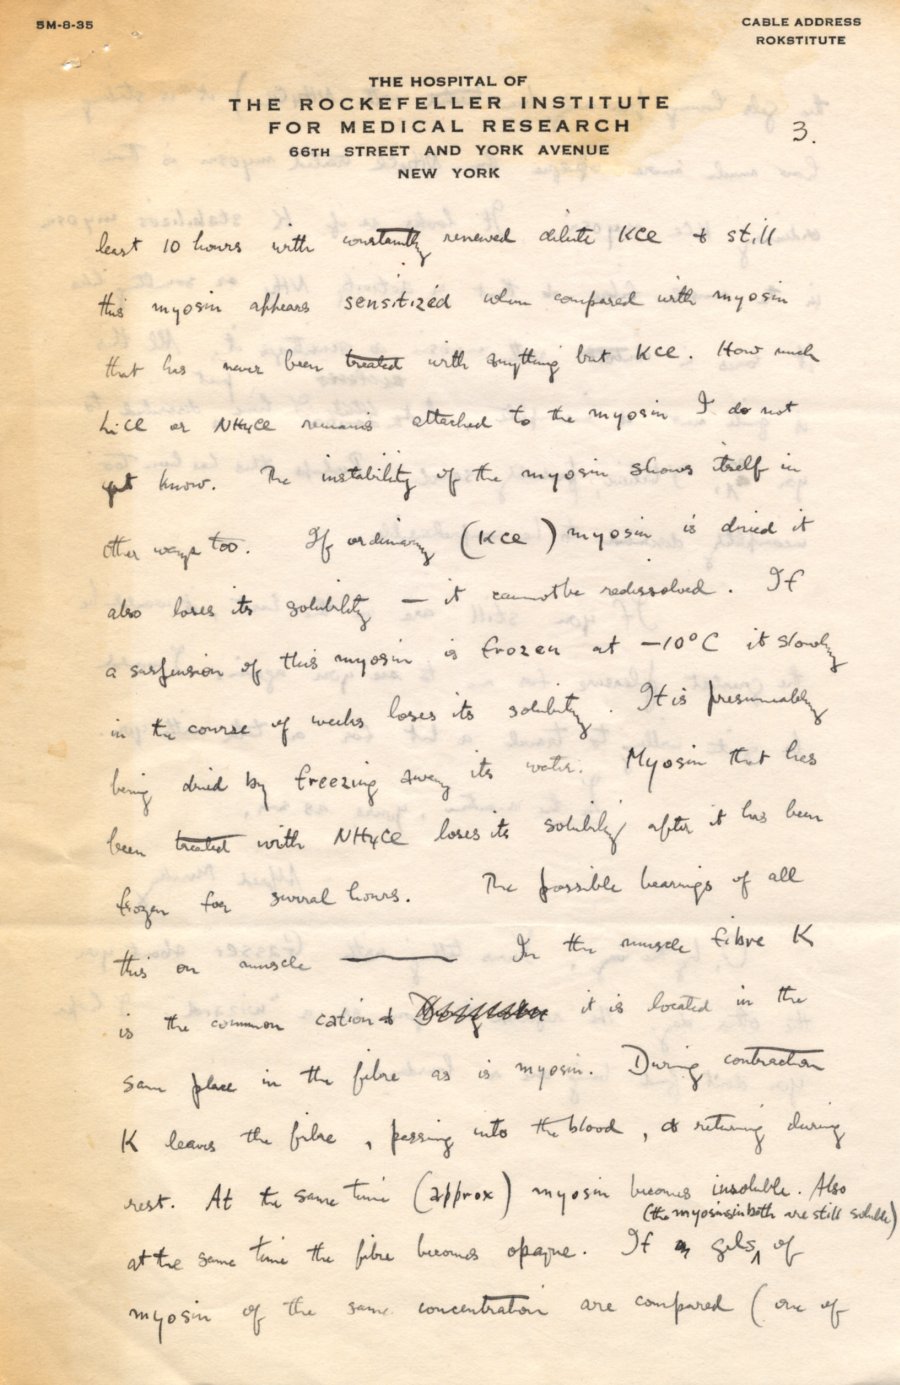 5M-8-35
CABLE ADDRESS
ROKSTITUTE
THE HOSPITAL OF
THE ROCKEFELLER INSTITUTE
FOR MEDICAL RESEARCH
66TH STREET AND YORK AVENUE
NEW YORK
3.
least 10 hours with constantly renewed dilute KCl & still
this myosin appears sensitized when compared with myosin
that has never been treated with anything but KCl. How much
LiCl or NH4Cl remains attached to the myosin I do not
yet know. The instability of the myosin shows itself in
other ways too. If ordinary (KCl) myosin is dried it
also loses its solubility — it cannot be redissolved. If
a suspension of this myosin is frozen at -10°C it slowly
in the course of weeks loses its solubility. It is presumably
being dried by freezing away its water. Myosin that has
been treated with NH4Cl loses its solubility after it has been
frozen for several hours. The possible bearings of all
this on muscle — In the muscle fibre K
is the common cation & it is located in the
same place in the fibre as is myosin. During contraction
K leaves the fibre, passing into the blood, & returning during
rest. At the same time (approx) myosin becomes insoluble. Also
(the myosins in both are still soluble)
at the same time the fibre becomes opaque. If gels of
myosin of the same concentration are compared (one of